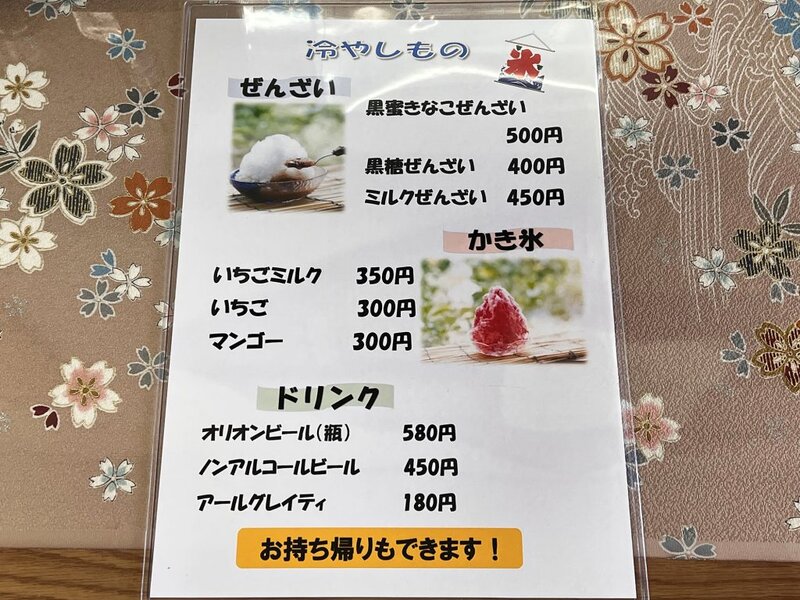 冷やしもの
氷
ぜんざい
黒蜜きなこぜんざい
500円
黒糖ぜんざい 400円
ミルクぜんざい 450円
かき氷
いちごミルク 350円
いちご 300円
マンゴー 300円
ドリンク
オリオンビール(瓶) 580円
ノンアルコールビール 450円
アールグレイティ 180円
お持ち帰りもできます!